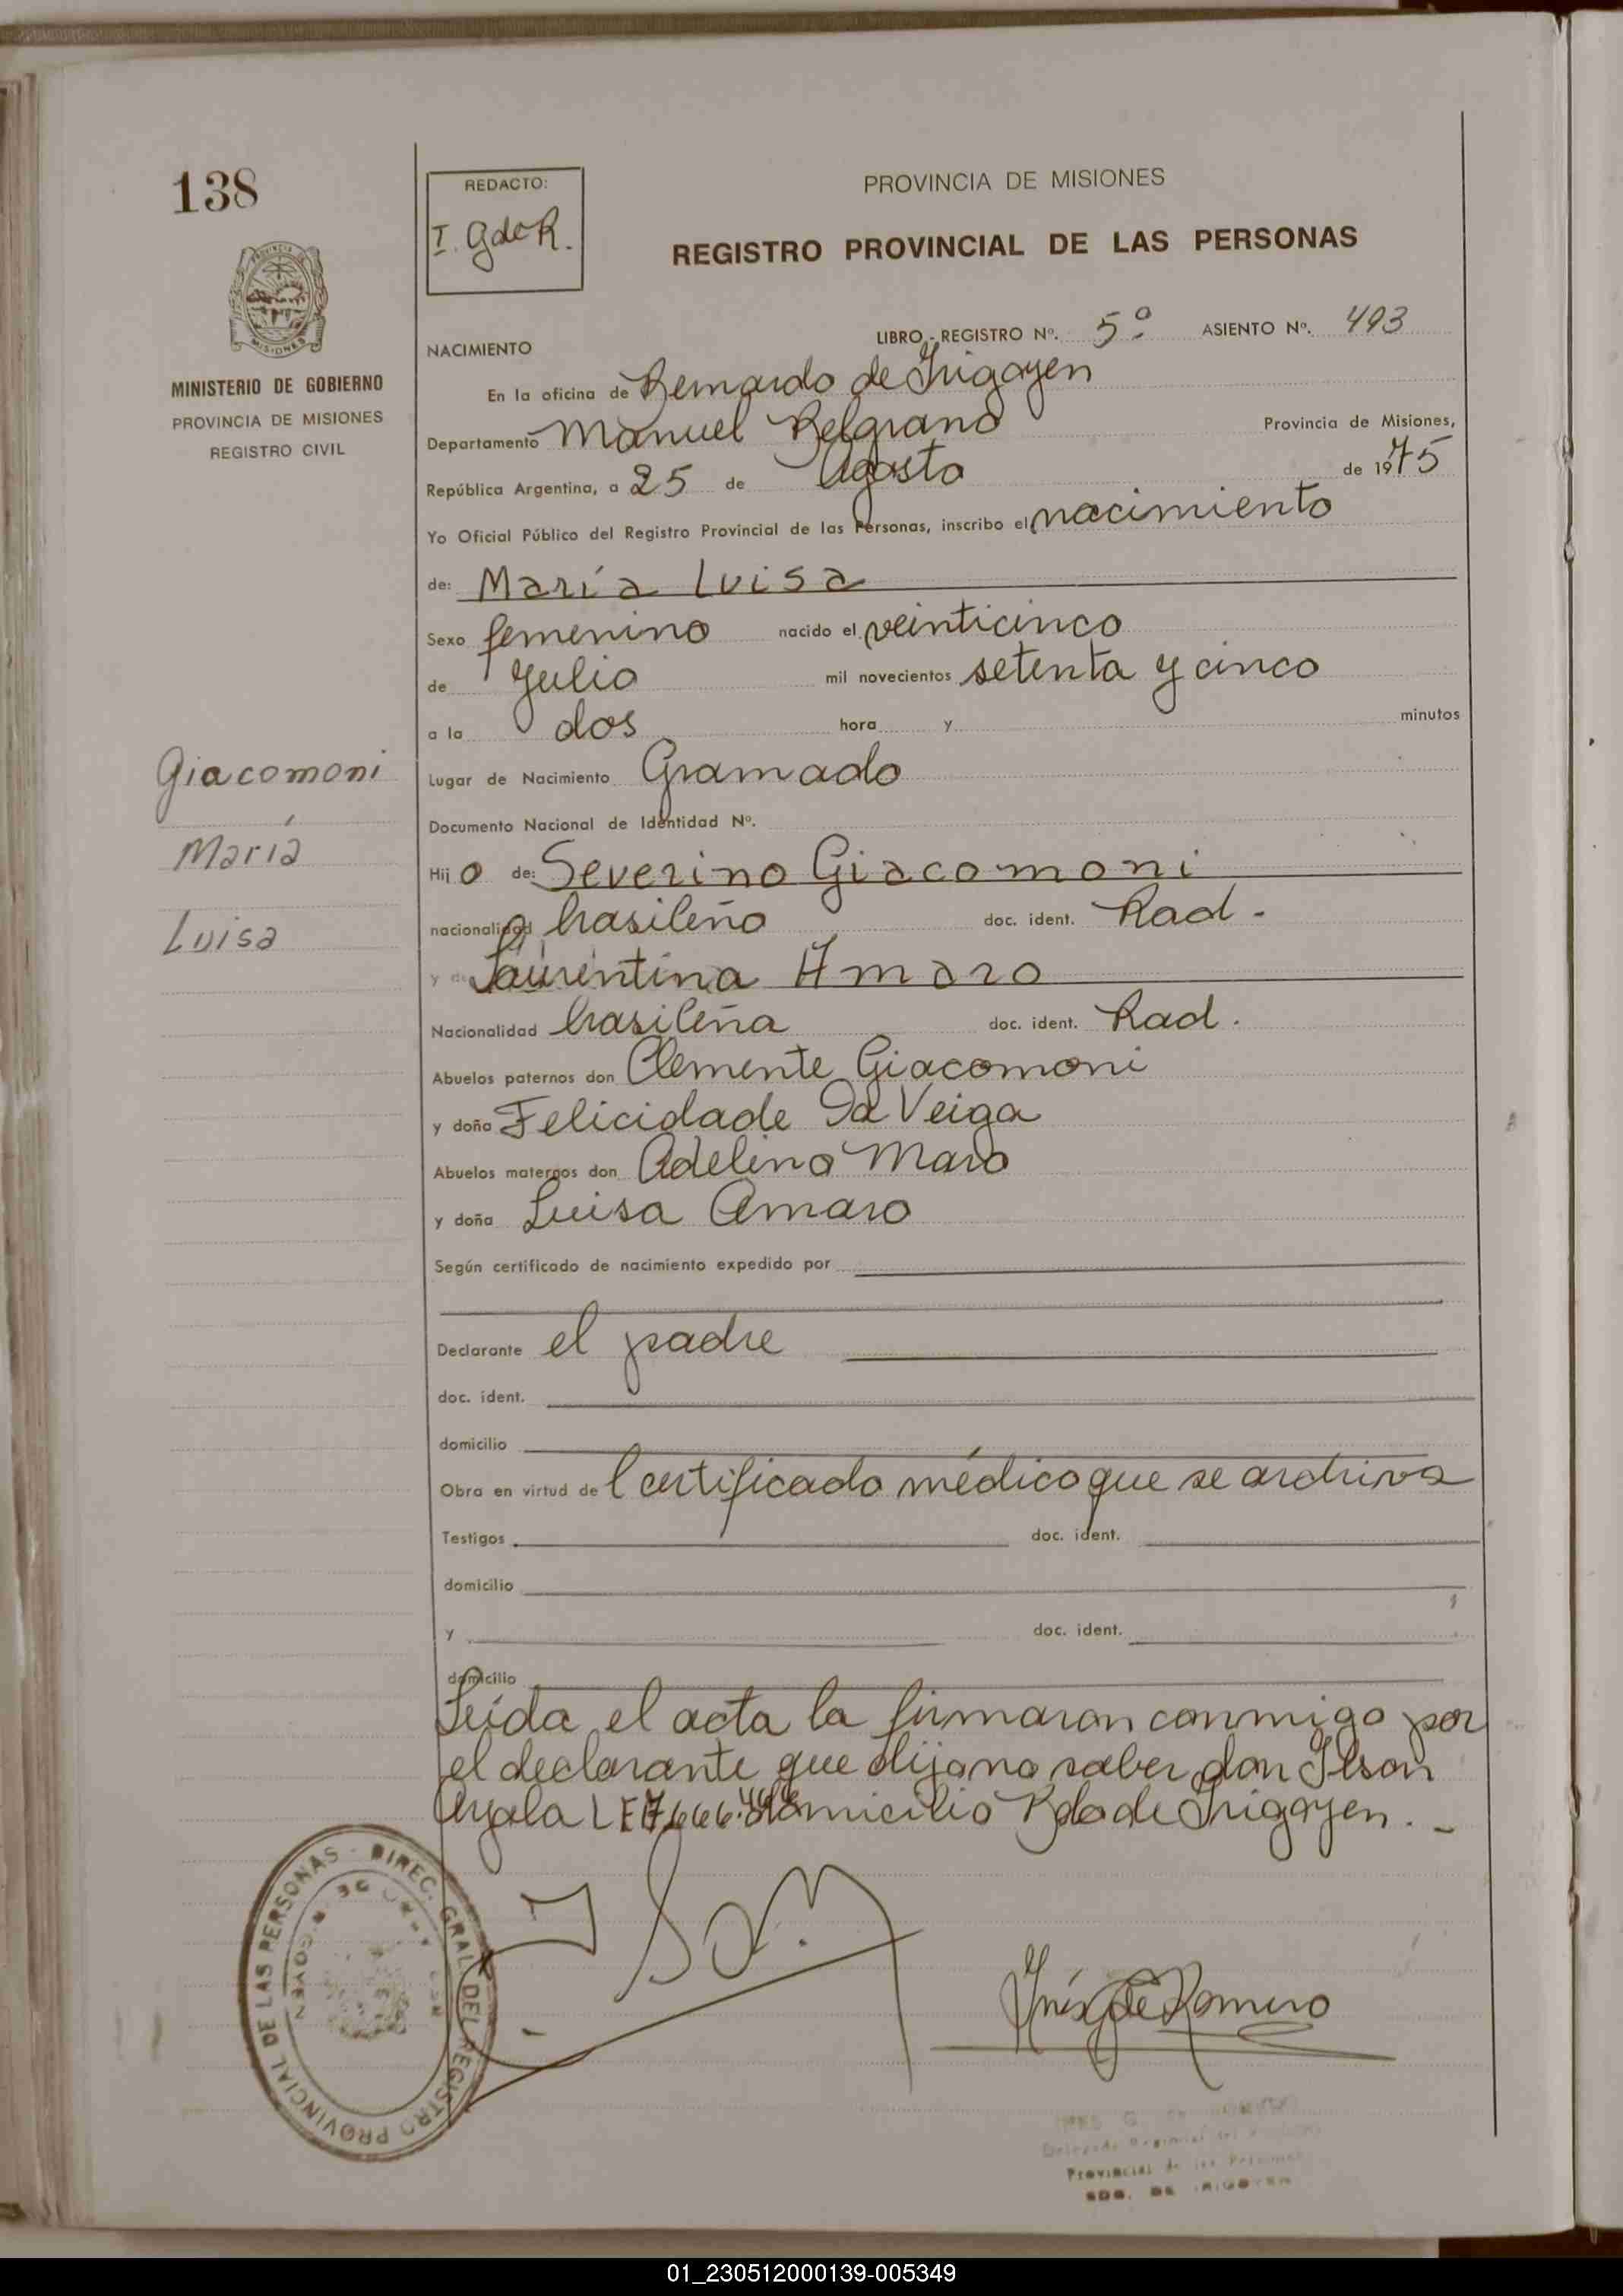 138
REDACTO:
I. G de R.
PROVINCIA DE MISIONES
REGISTRO PROVINCIAL DE LAS PERSONAS
MISIONES
MINISTERIO DE GOBIERNO
PROVINCIA DE MISIONES
REGISTRO CIVIL
LIBRO - REGISTRO Nº. 5º ASIENTO Nº. 493
NACIMIENTO
En la oficina de Bernardo de Irigoyen
Departamento Manuel Belgrano Provincia de Misiones,
República Argentina, a 25 de Agosto de 1975
Yo Oficial Público del Registro Provincial de las Personas, inscribo el nacimiento
de: María Luisa
Sexo femenino nacido el veinticinco
de Julio mil novecientos setenta y cinco
a la dos hora y minutos
Lugar de Nacimiento Gramado
Documento Nacional de Identidad Nº.
Giacomoni
María
Luisa
Hijo de: Severino Giacomoni
nacionalidad brasileño doc. ident. Rad.
y de Laurentina Amaro
Nacionalidad brasileña doc. ident. Rad.
Abuelos paternos don Clemente Giacomoni
y doña Felicidade Da Veiga
Abuelos maternos don Adelino Maro
y doña Luisa Amaro
Según certificado de nacimiento expedido por
Declarante el padre
doc. ident.
domicilio
Obra en virtud del certificado médico que se archiva
Testigos doc. ident.
domicilio
y doc. ident.
domicilio
Leída el acta la firmaron conmigo por
el declarante que dijo no saber don Ilson
Ayala LE 7.666. domicilio Bdo de Irigoyen.-
DIREC. GRAL. DEL REGISTRO PROVINCIAL DE LAS PERSONAS
Inés G de Romero
Provincial de las Personas
BDO. DE IRIGOYEN
01_230512000139-005349